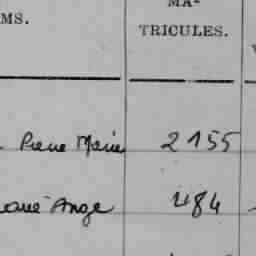 MS.
MA-
TRICULES.
Pierre Marie 2155
Ange 484